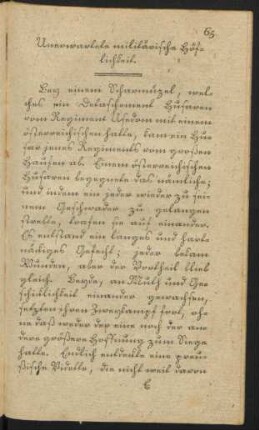 65
Unerwartete militärische Höf-
lichkeit.
Bey einem Scharmüzel, wel-
ches ein Detaschement Husaren
vom Regiment Usedom mit einem
österreichischen hatte, kam ein Hu-
sar jenes Regiments vom großen
Haufen ab. Einem österreichischen
Husaren begegnete das nämliche;
und indem ein jeder wieder zu sei-
nem Geschwader zu gelangen
strebte, trafen sie auf einander.
Es entstand ein langes und hart-
näckiges Gefecht; jeder bekam
Wunden, aber der Vortheil blieb
gleich. Beyde, an Muth und Ge-
schicklichkeit einander gewachsen,
setzten ihren Zweykampf fort, oh-
ne daß weder der eine noch der an-
dere größere Hoffnung zum Siege
hatte. Endlich entdeckte eine preu-
ßische Vidette, die nicht weit davon